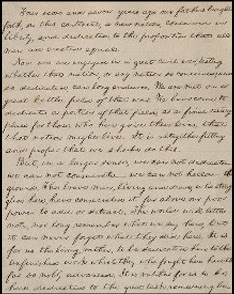 Four score and seven years ago our fathers brought
forth, on this continent, a new nation, conceived in
liberty, and dedicated to the proposition that all
men are created equal.
Now we are engaged in a great civil war, testing
whether that nation, or any nation so conceived and
so dedicated, can long endure. We are met on a
great battle field of that war. We have come to
dedicate a portion of that field, as a final resting
place for those who here gave their lives, that
that nation might live. It is altogether fitting
and proper that we should do this.
But, in a larger sense, we can not dedicate
we can not consecrate we can not hallow this
ground. The brave men, living and dead, who strug
gled here have consecrated it far above our poor
power to add or detract. The world will little
note, nor long remember what we say here, but
it can never forget what they did here. It is
for us the living, rather, to be dedicated here to the
unfinished work which they who fought here have
far so nobly advanced. It is rather for us to be
here dedicated to the great task remaining